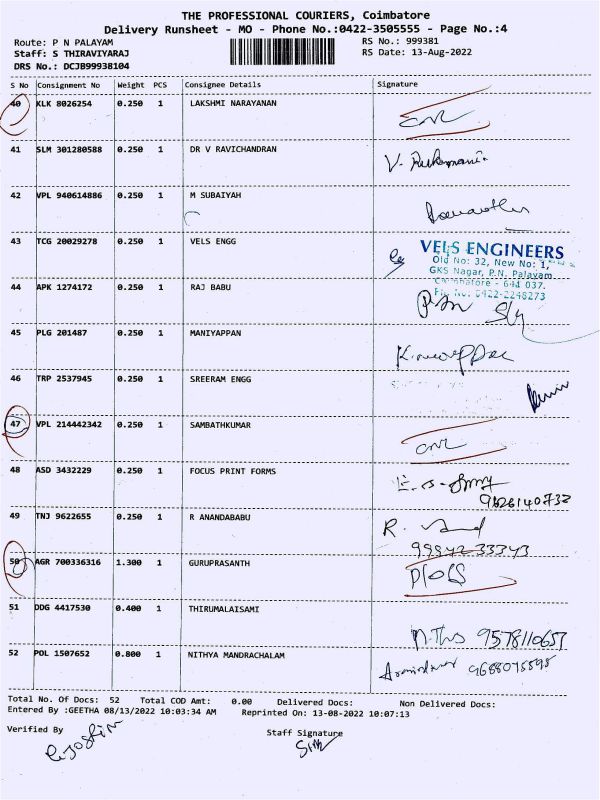 THE PROFESSIONAL COURIERS, Coimbatore
Delivery Runsheet - MO - Phone No.:0422-3505555 - Page No.:4
Route: P N PALAYAM RS No.: 999381
Staff: S THIRAVIYARAJ RS Date: 13-Aug-2022
DRS No.: DCJB99938104
S No Consignment No Weight PCS Consignee Details Signature
40 KLK 8026254 0.250 1 LAKSHMI NARAYANAN
CNR
41 SLM 301280588 0.250 1 DR V RAVICHANDRAN
42 VPL 940614886 0.250 1 M SUBAIYAH
43 TCG 20029278 0.250 1 VELS ENGG
VELS ENGINEERS
Old No: 32, New No: 1,
GKS Nagar, P.N. Palayam
Coimbatore - 641 037.
44 APK 1274172 0.250 1 RAJ BABU
45 PLG 201487 0.250 1 MANIYAPPAN
46 TRP 2537945 0.250 1 SREERAM ENGG
47 VPL 214442342 0.250 1 SAMBATHKUMAR
CNR
48 ASD 3432229 0.250 1 FOCUS PRINT FORMS
9626140732
49 TNJ 9622655 0.250 1 R ANANDABABU
99942 33343
50 AGR 700336316 1.300 1 GURUPRASANTH
51 DDG 4417530 0.400 1 THIRUMALAISAMI
9578110657
52 POL 1507652 0.800 1 NITHYA MANDRACHALAM
9688075595
Total No. Of Docs: 52 Total COD Amt: 0.00 Delivered Docs: Non Delivered Docs:
Entered By :GEETHA 08/13/2022 10:03:34 AM Reprinted On: 13-08-2022 10:07:13
Verified By Staff Signature